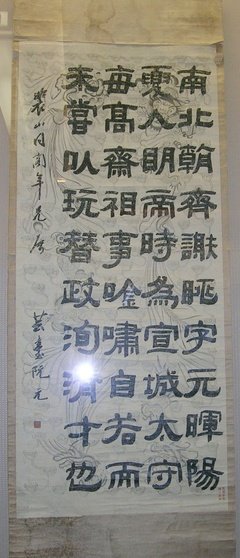 南北朝齊謝眺字元暉陽
夏人明帝時為宣城太守
毎高齋視事唫嘯自若而
未嘗以玩替政洵濟才也
裴山同閣年兄屬
芸臺阮元